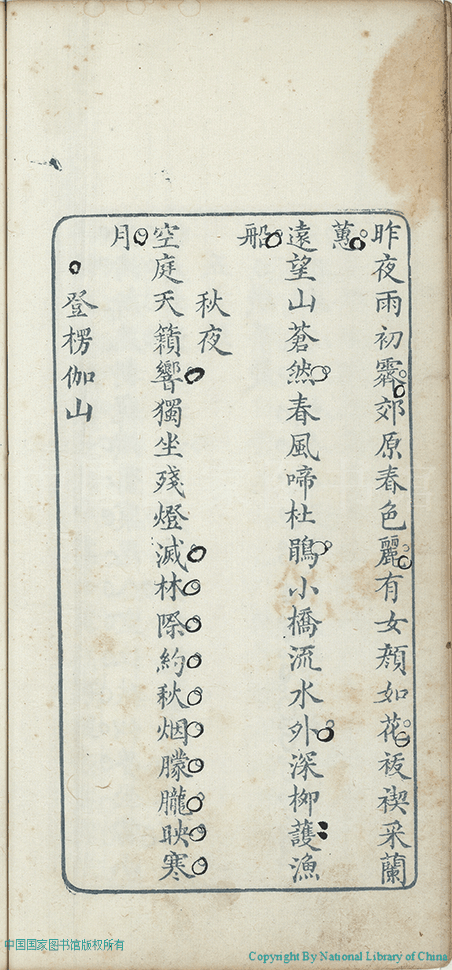 昨夜雨初霽郊原春色麗有女顔如花祓禊采蘭
蕙
遠望山蒼然春風啼杜鵑小橋流水外深柳護漁
船
秋夜
空庭天籟響獨坐殘燈滅林際約秋烟朦朧映寒
月
登楞伽山
中国国家图书馆版权所有
Copyright By National Library of China